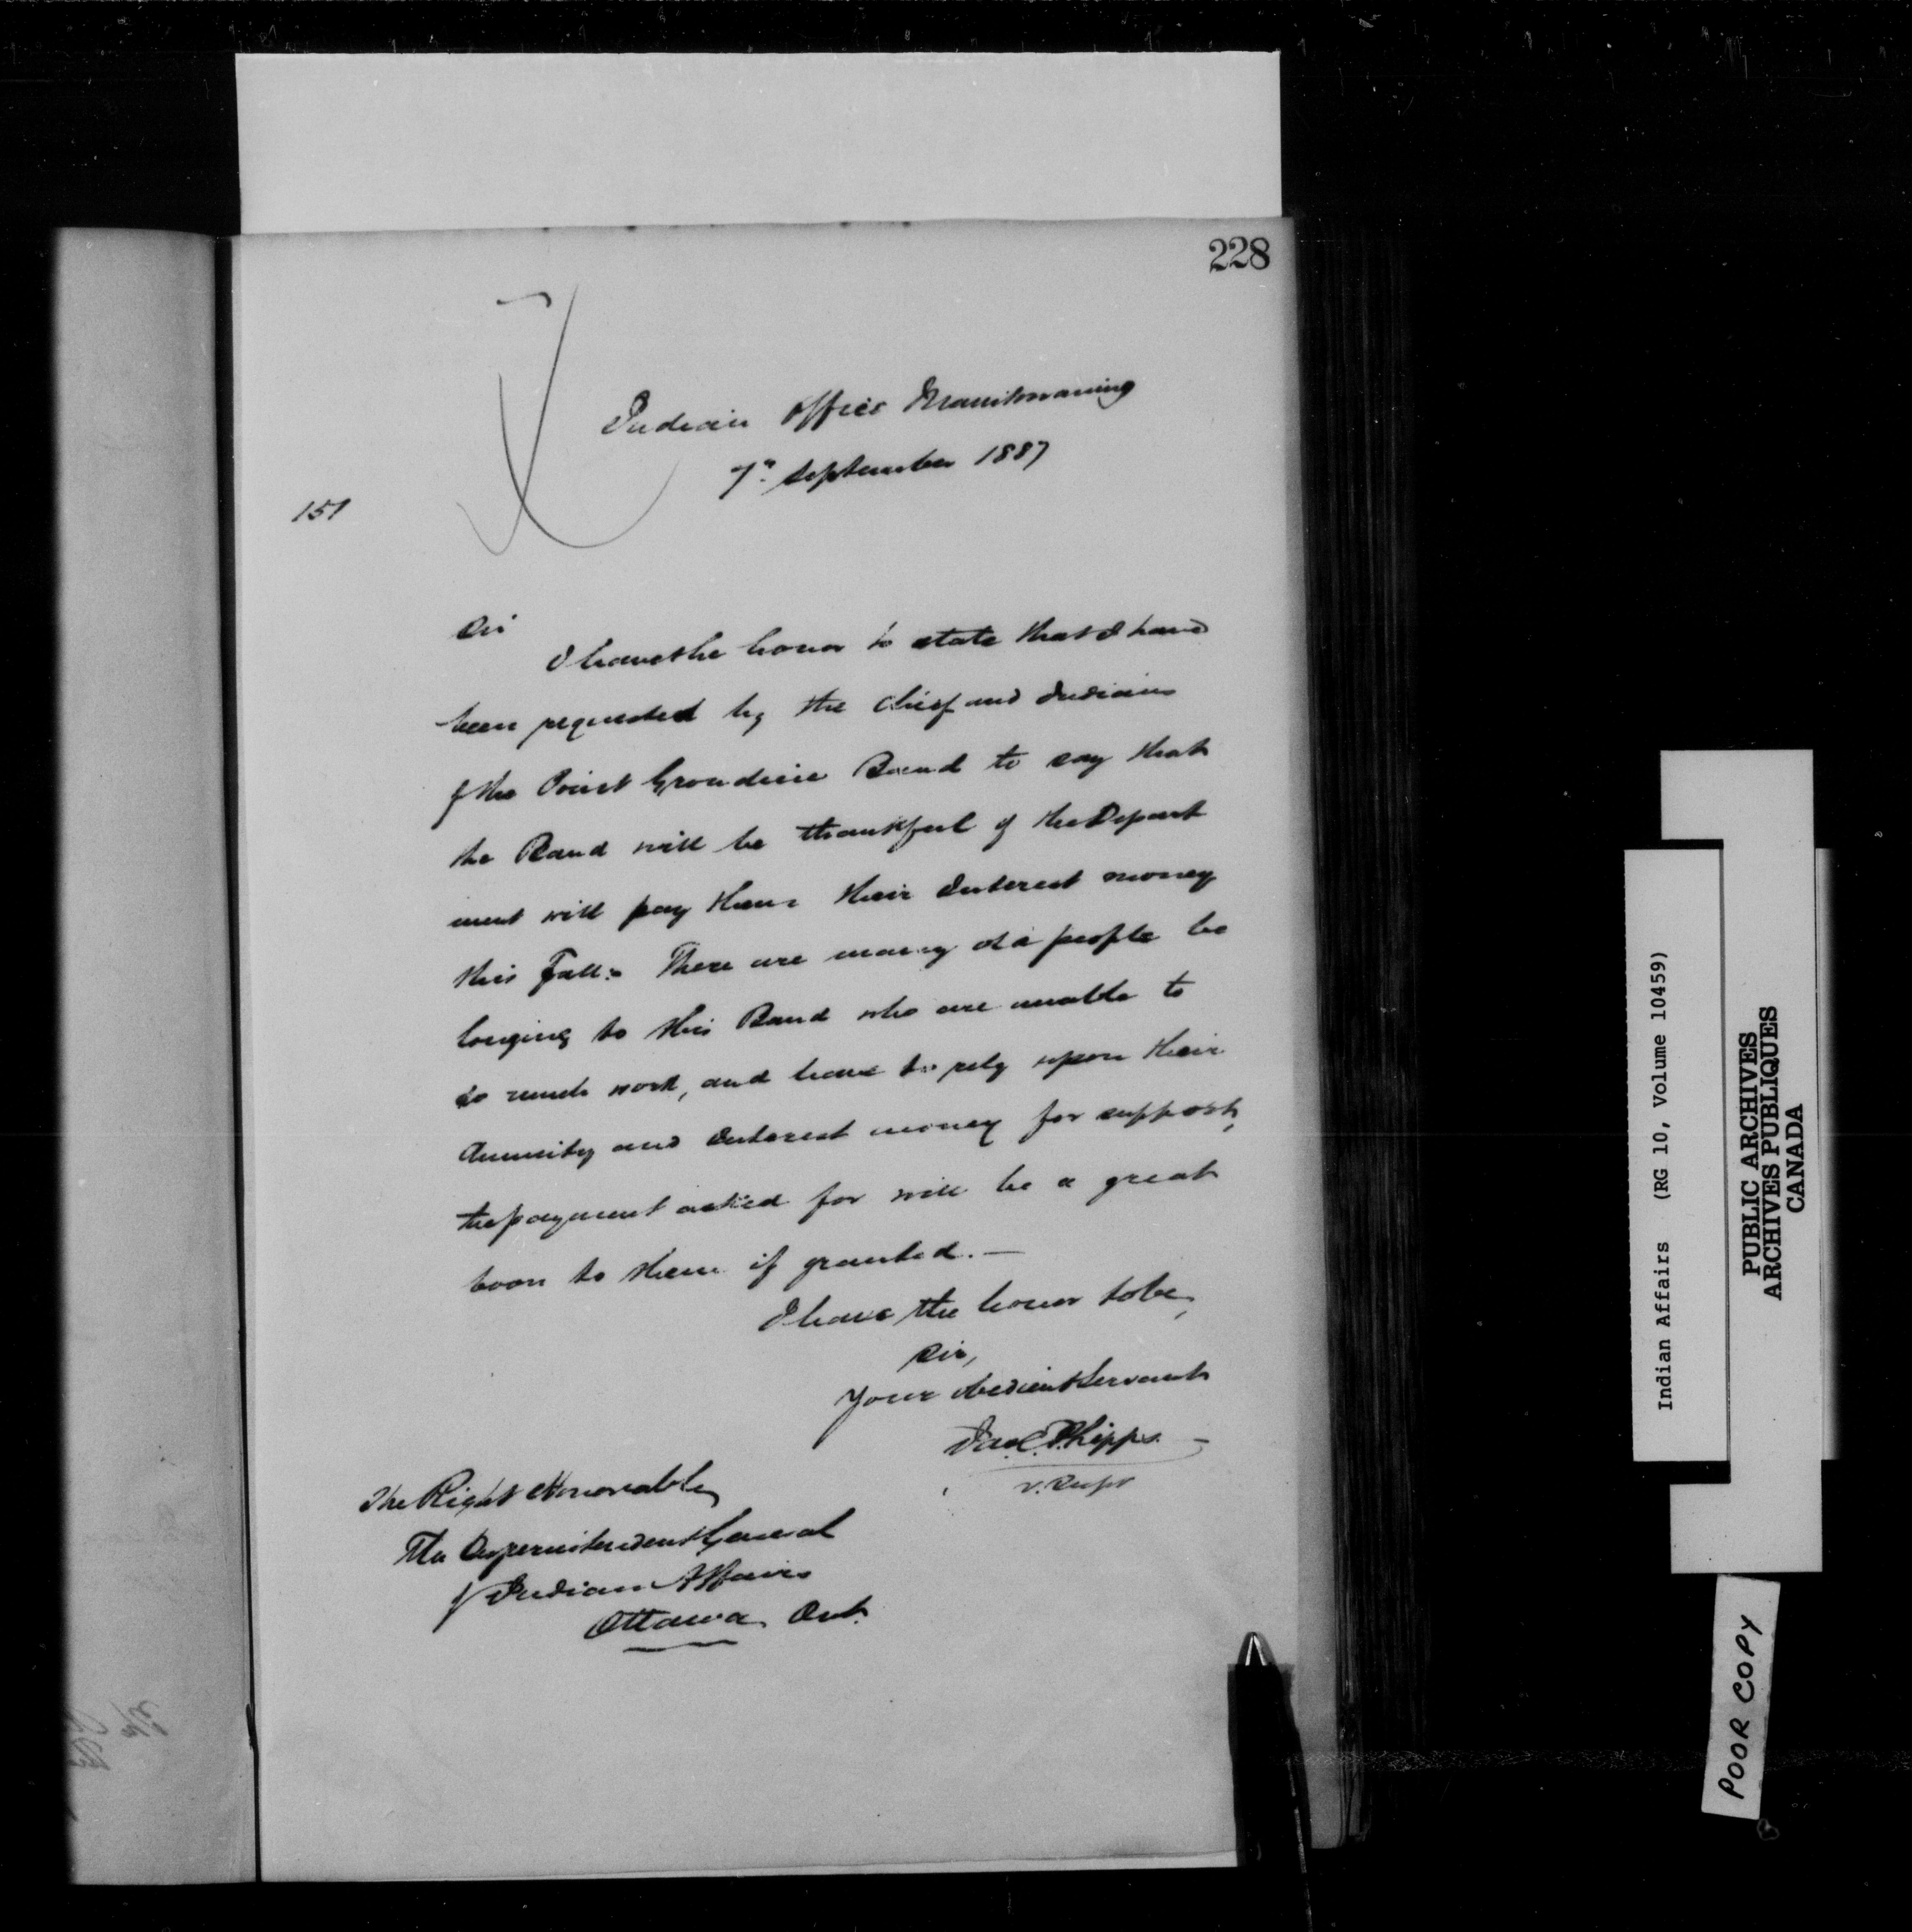 228
Indian Office Manitowaning
7th September 1887
151
Sir
I have the honor to state that I have
been requested by the Chief and Indians
of the Point Grondine Band to say that
the Band will be thankful if the Depart
ment will pay them their Interest money
this Fall. There are many old people be
longing to this Band who are unable to
do much work, and have to rely upon their
Annuity and Interest money for support,
the payment asked for will be a great
boon to them if granted. —
I have the honor to be,
Sir,
Your obedient Servant
Jas. C. Phipps. —
V. Supt
The Right Honorable
The Superintendent General
of Indian Affairs
Ottawa Ont.
Indian Affairs (RG 10, Volume 10459)
PUBLIC ARCHIVES
ARCHIVES PUBLIQUES
CANADA
POOR COPY